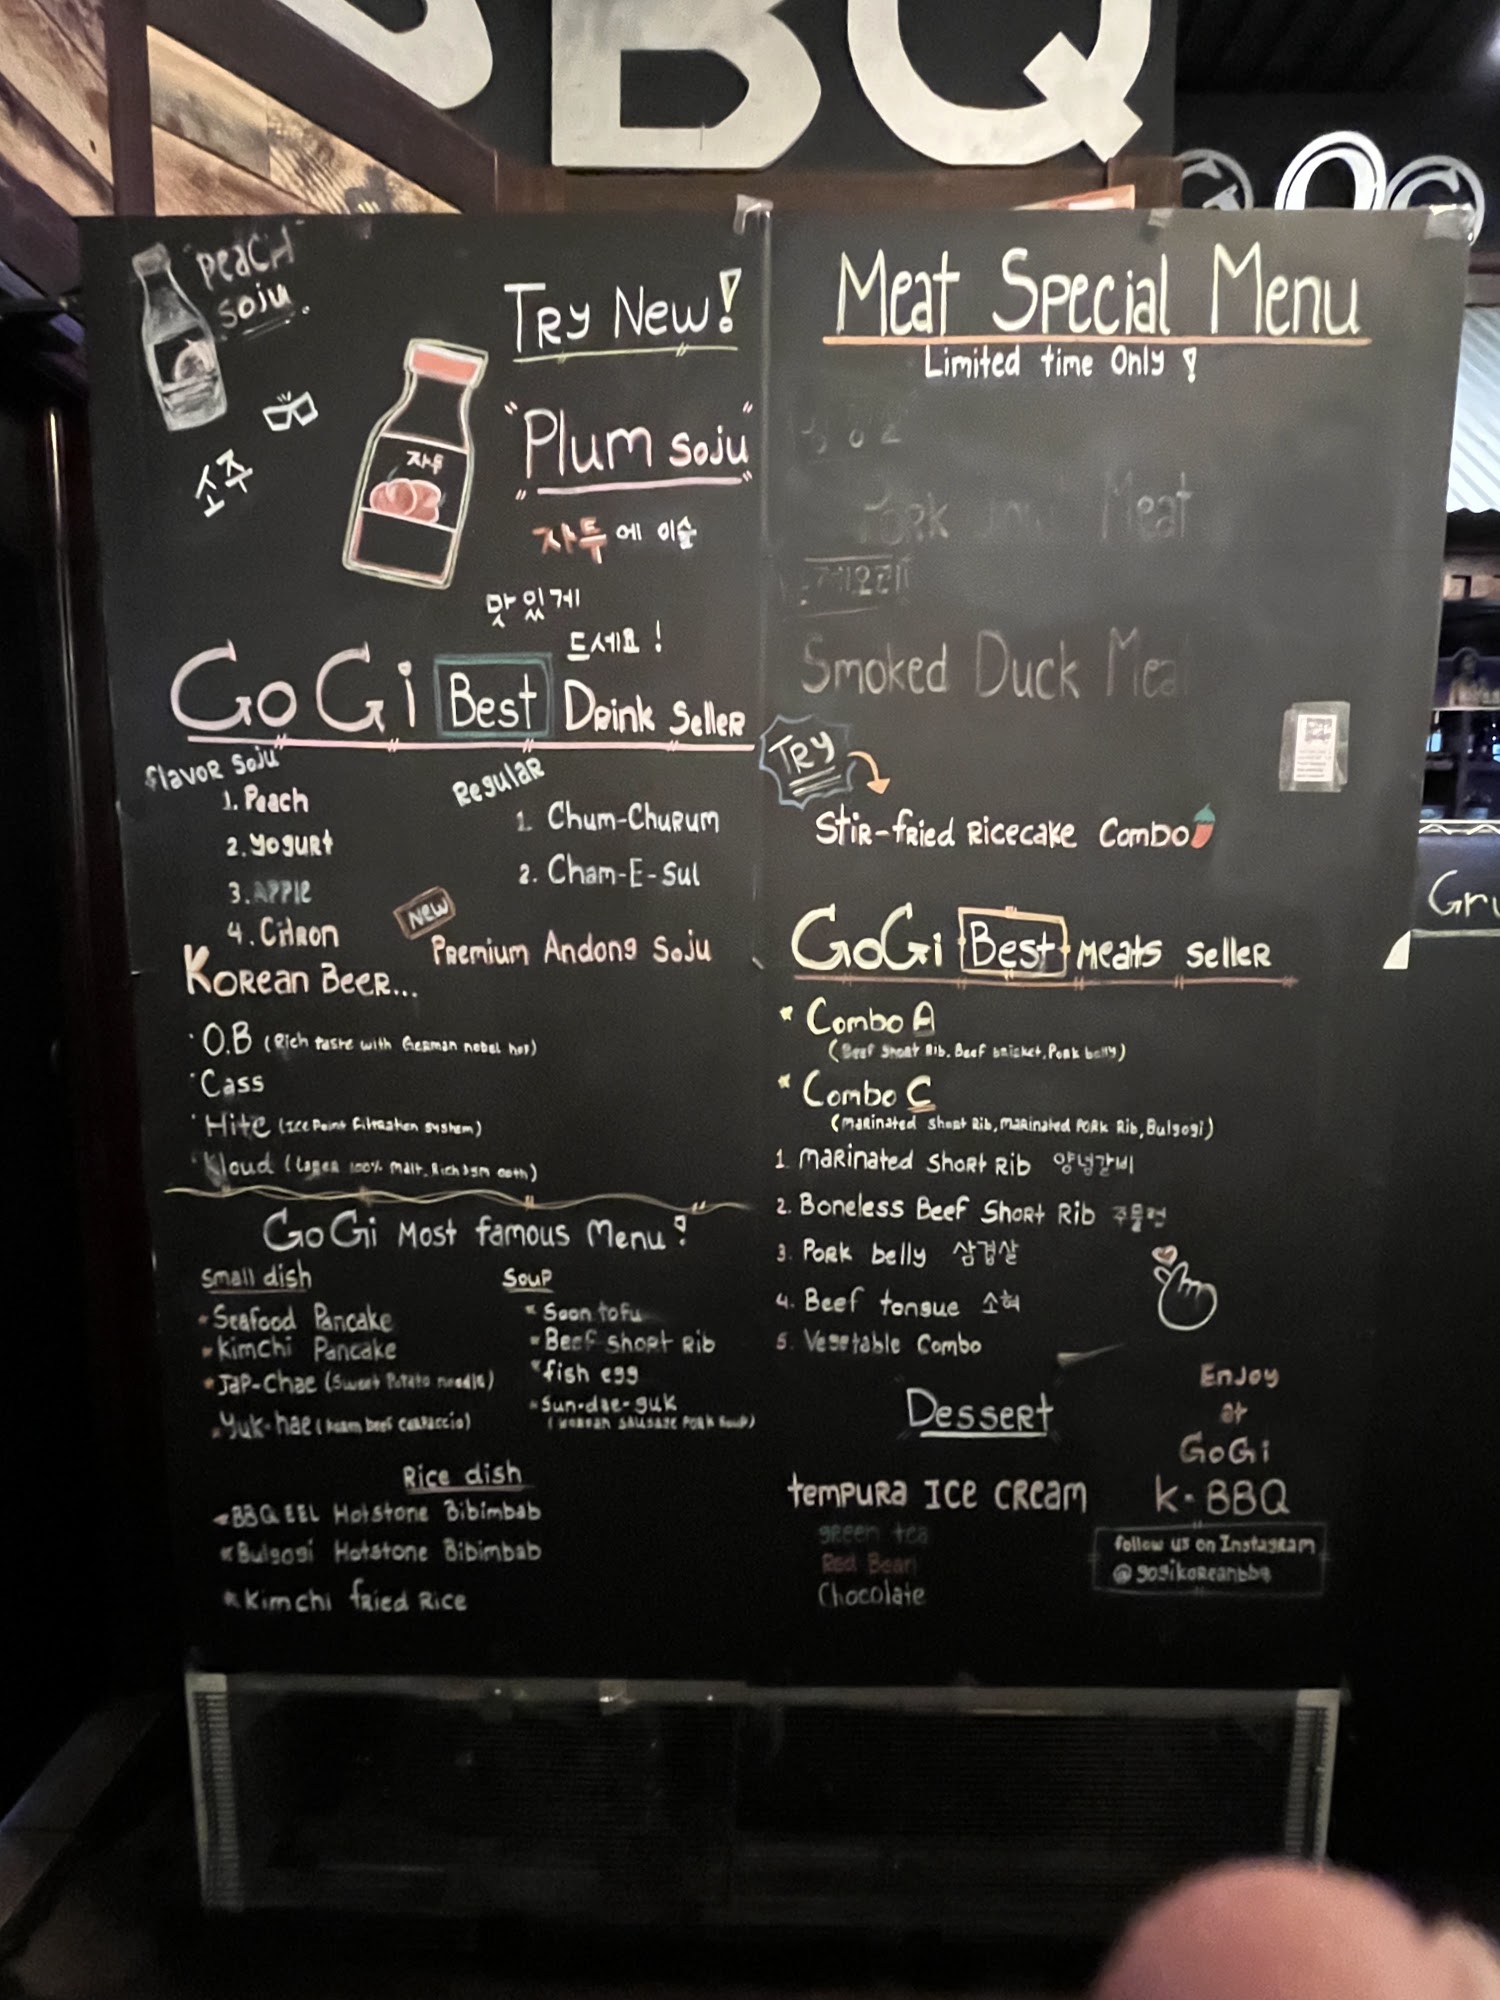 BBQ
"PEACH"
Soju
소주
Try New!
"Plum Soju"
자두
자두에 이슬
맛있게
드세요!
GoGi Best Drink Seller
Flavor Soju
1. Peach
2. Yogurt
3. Apple
4. Citron
Regular
1. Chum-Churum
2. Cham-E-Sul
New
Premium Andong Soju
Korean Beer...
O.B (Rich taste with German nobel hop)
Cass
Hite (Ice Point Filtration System)
Kloud (Lager 100% Malt, Rich
GoGi Most famous Menu!
Small dish
Seafood Pancake
Kimchi Pancake
Jap-Chae (Sweet Potato noodle)
Yuk-hae ( beef carpaccio)
Soup
Soon tofu
Beef Short Rib
fish egg
Sun-dae-guk
(Korean Sausage Pork Soup)
Rice dish
BBQ EEL Hotstone Bibimbab
Bulgogi Hotstone Bibimbab
Kimchi fried Rice
Meat Special Menu
Limited time Only!
Pork Jowl Meat
Smoked Duck Meat
TRY
Stir-fried Ricecake Combo
GoGi Best Meats Seller
* Combo A
(Beef Short Rib, Beef brisket, Pork belly)
* Combo C
(Marinated Short Rib, Marinated Pork Rib, Bulgogi)
1. Marinated Short Rib 양념갈비
2. Boneless Beef Short Rib 주물럭
3. Pork belly 삼겹살
4. Beef tongue 소혀
5. Vegetable Combo
Dessert
Tempura Ice Cream
green tea
Red Bean
Chocolate
Enjoy
at
GoGi
K-BBQ
follow us on Instagram
@gogikoreanbbq
Gr